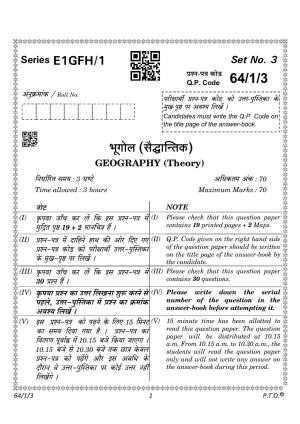 Series E1GFH/1
Set No. 3
प्रश्न-पत्र कोड
Q.P. Code 64/1/3
अनुक्रमांक / Roll No.
परीक्षार्थी प्रश्न-पत्र कोड को उत्तर-पुस्तिका के
मुख-पृष्ठ पर अवश्य लिखें ।
Candidates must write the Q.P. Code on
the title page of the answer-book.
भूगोल (सैद्धान्तिक)
GEOGRAPHY (Theory)
निर्धारित समय : 3 घण्टे
अधिकतम अंक : 70
Time allowed : 3 hours
Maximum Marks : 70
नोट
(I) कृपया जाँच कर लें कि इस प्रश्न-पत्र में
मुद्रित पृष्ठ 19 + 2 मानचित्र हैं ।
(II) प्रश्न-पत्र में दाहिने हाथ की ओर दिए गए
प्रश्न-पत्र कोड को परीक्षार्थी उत्तर-पुस्तिका
के मुख-पृष्ठ पर लिखें ।
(III) कृपया जाँच कर लें कि इस प्रश्न-पत्र में
30 प्रश्न हैं ।
(IV) कृपया प्रश्न का उत्तर लिखना शुरू करने से
पहले, उत्तर-पुस्तिका में प्रश्न का क्रमांक
अवश्य लिखें ।
(V) इस प्रश्न-पत्र को पढ़ने के लिए 15 मिनट
का समय दिया गया है । प्रश्न-पत्र का
वितरण पूर्वाह्न में 10.15 बजे किया जाएगा ।
10.15 बजे से 10.30 बजे तक छात्र केवल
प्रश्न-पत्र को पढ़ेंगे और इस अवधि के
दौरान वे उत्तर-पुस्तिका पर कोई उत्तर नहीं
लिखेंगे ।
NOTE
(I) Please check that this question paper
contains 19 printed pages + 2 Maps.
(II) Q.P. Code given on the right hand side
of the question paper should be written
on the title page of the answer-book by
the candidate.
(III) Please check that this question paper
contains 30 questions.
(IV) Please write down the serial
number of the question in the
answer-book before attempting it.
(V) 15 minute time has been allotted to
read this question paper. The question
paper will be distributed at 10.15
a.m. From 10.15 a.m. to 10.30 a.m., the
students will read the question paper
only and will not write any answer on
the answer-book during this period.
64/1/3
1
P.T.O.